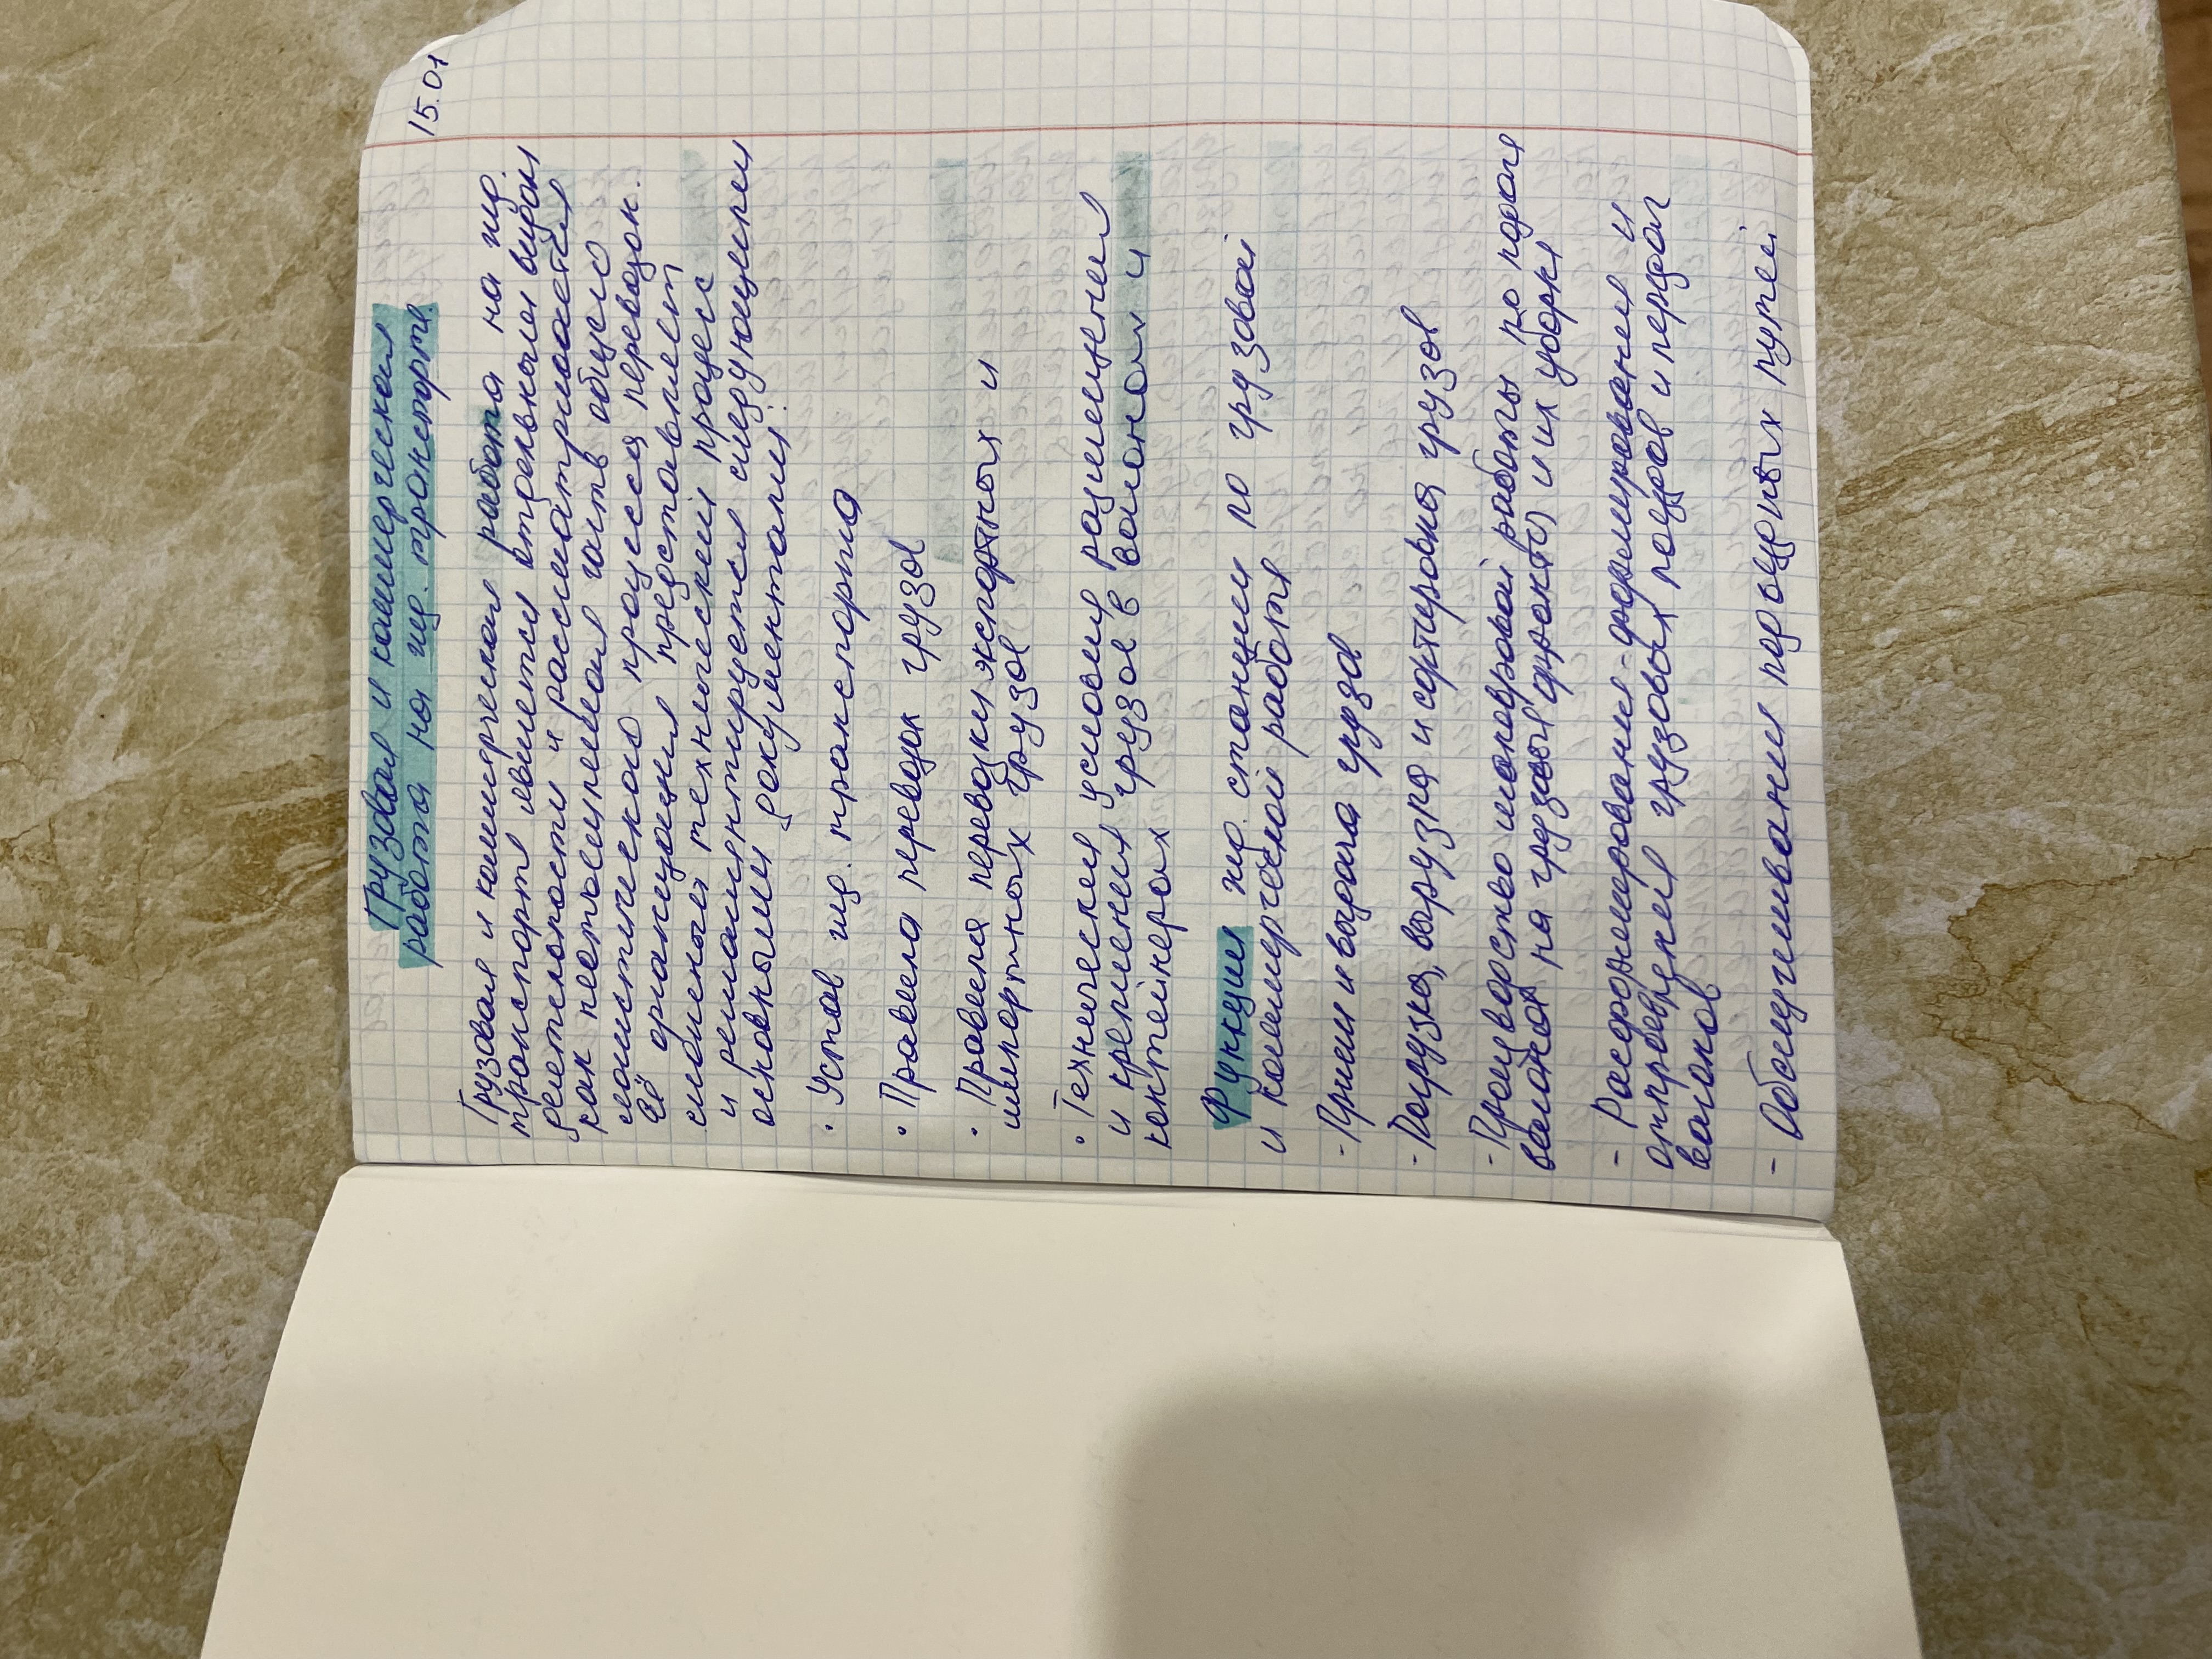 15.01
Грузовая и коммерческая
работа на жд. транспорте.
Грузовая и коммерческая работа на жд.
транспорте является отдельным видом
деятельности и рассматривается
как неотъемлемая часть общего
логистического процесса перевозок.
Её организация представляет
сложный технический процесс
и регламентируется следующими
основными документами:
· Устав жд. транспорта
· Правила перевозок грузов
· Правила перевозки экспортных и
импортных грузов
· Технические условия размещения
и крепления грузов в вагонах и
контейнерах
Функции жд. станции по грузовой
и коммерческой работе
- Прием и выдача грузов
- Погрузка, выгрузка и сортировка грузов
- Производство маневровой работы по подаче
вагонов на грузовые фронты и их уборке
- Расформирование-формирование и
отправление грузовых поездов и передач
вагонов
- Обслуживание подъездных путей